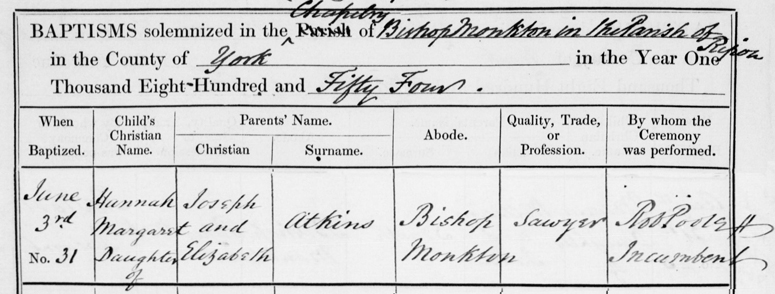 Chapelry
BAPTISMS solemnized in the Parish of Bishop Monkton in the Parish of
Ripon
in the County of York in the Year One
Thousand Eight Hundred and Fifty Four.
When Baptized. Child's Christian Name. Parents' Name. Abode. Quality, Trade, or Profession. By whom the Ceremony was performed.
Christian Surname.
June Hannah Joseph
3rd Margaret and Atkins Bishop Sawyer Rob Poole
No. 31 Daughter Elizabeth Monkton Incumbent
of